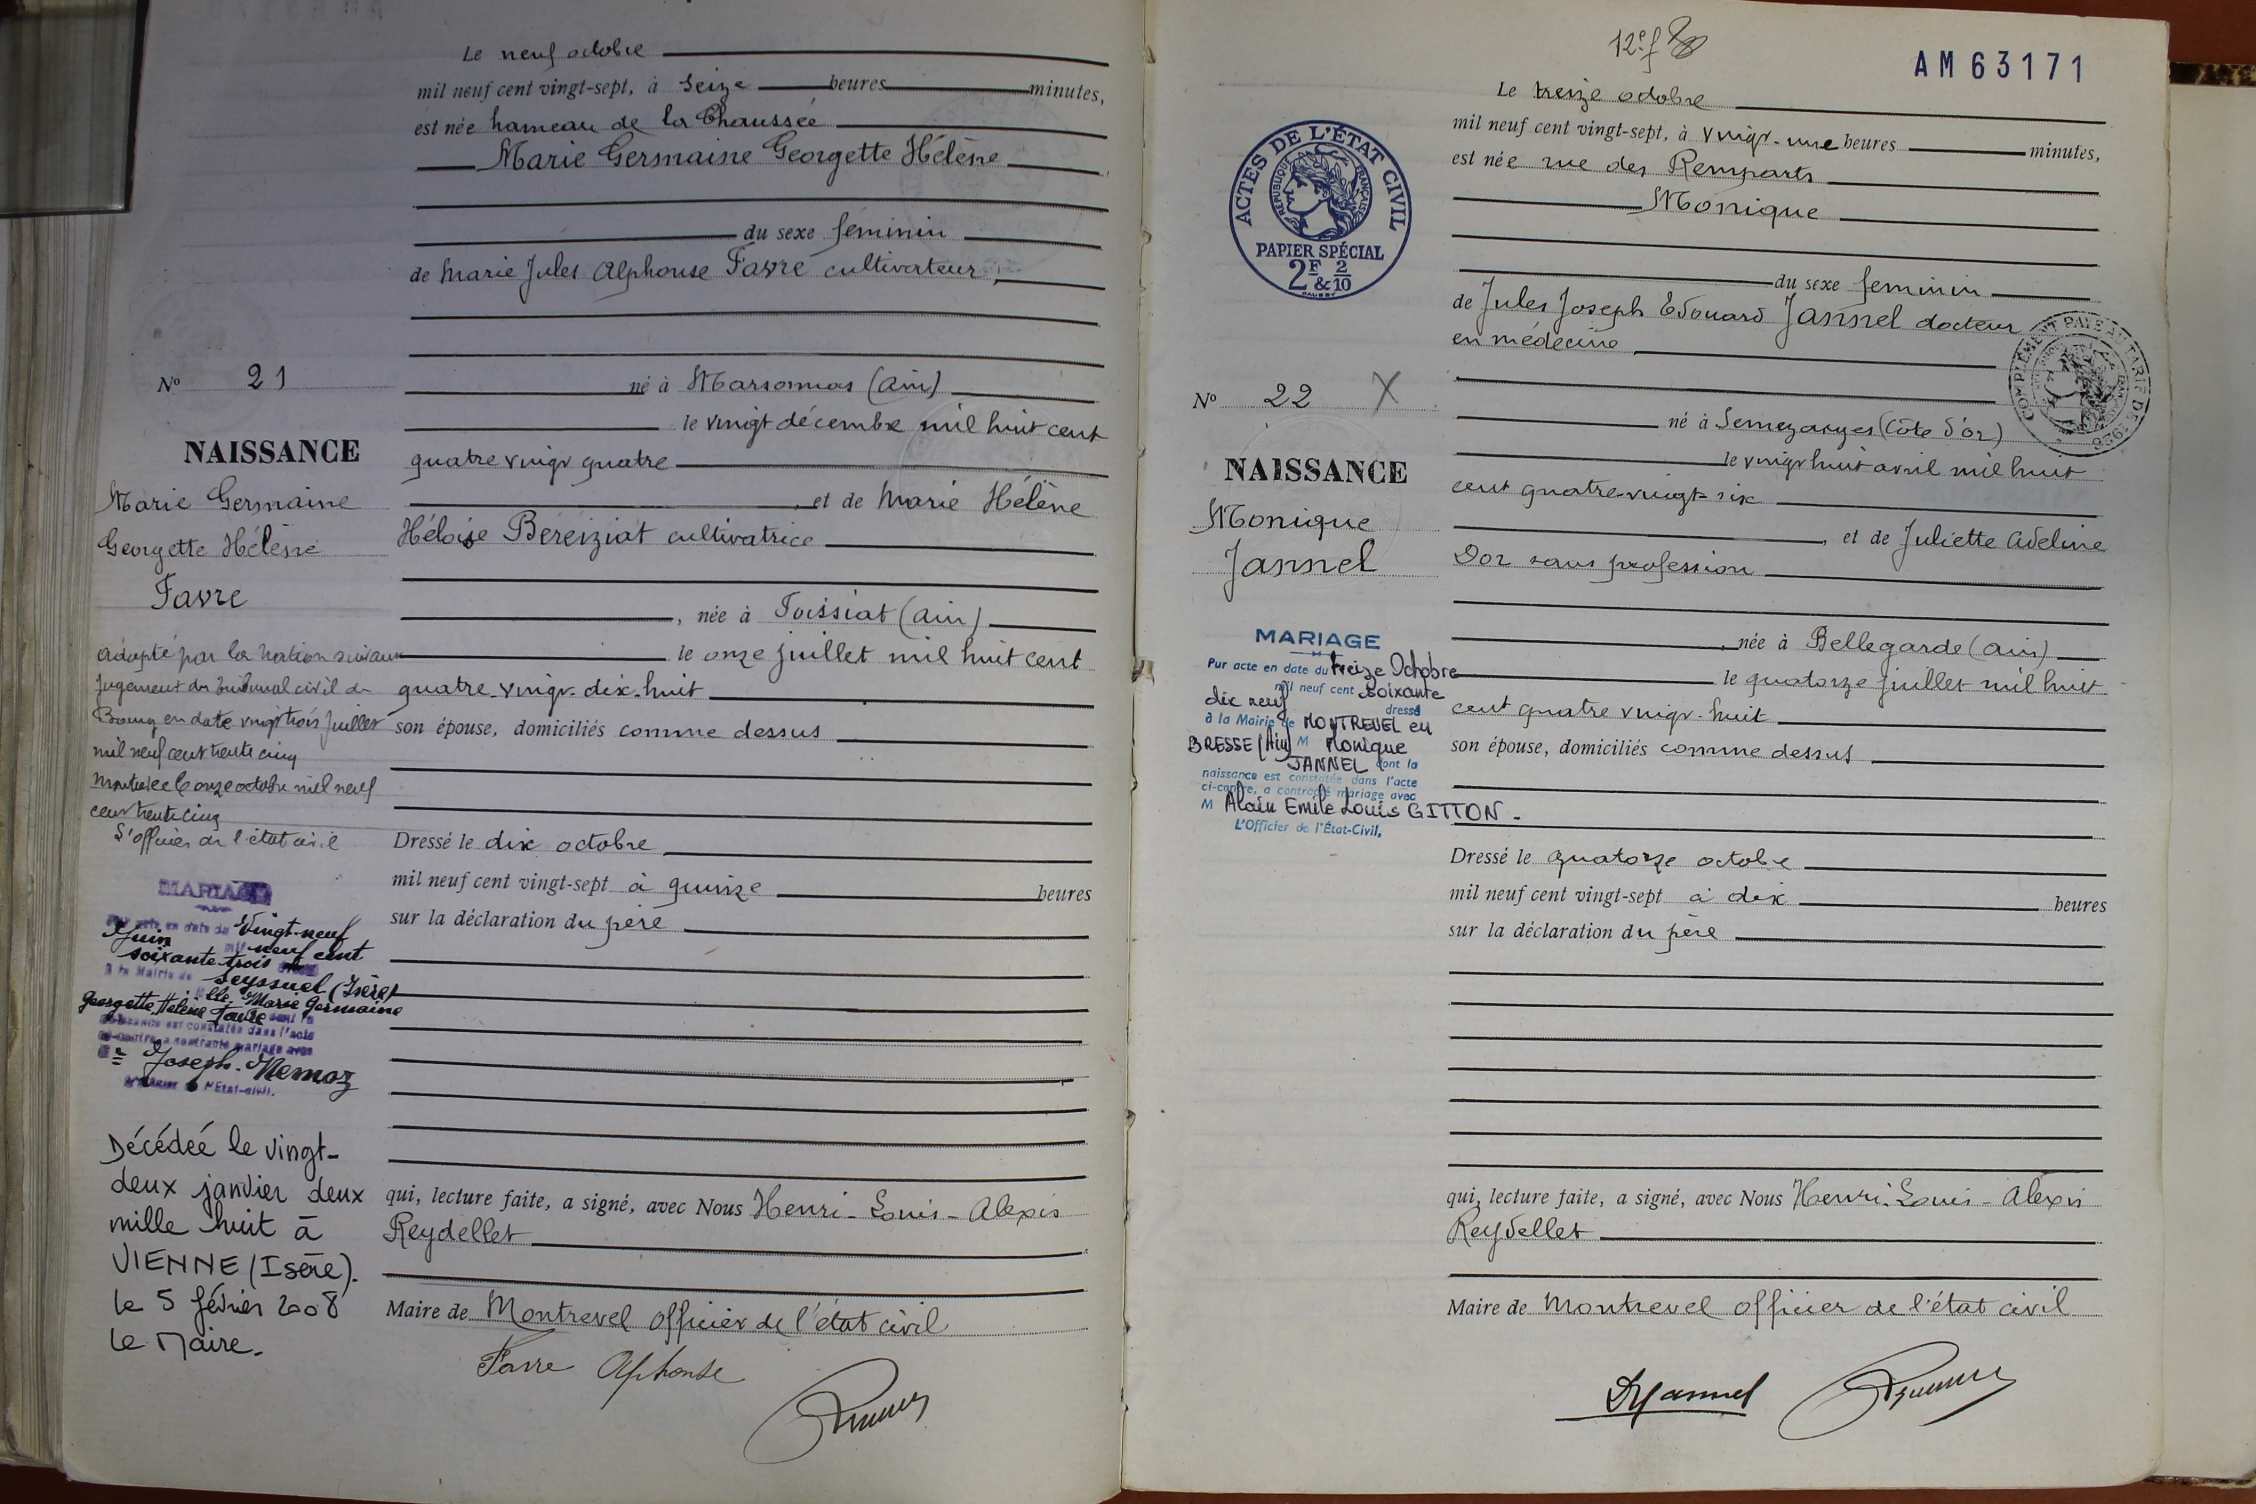 Le neuf octobre
mil neuf cent vingt-sept, à seize heures minutes,
est née hameau de la Chaussée
Marie Germaine Georgette Hélène
du sexe féminin
de Marie Jules Alphonse Favre cultivateur,
né à Marsonnas (Ain)
le vingt décembre mil huit cent
quatre vingt quatre
et de Marie Hélène
Héloïse Béréiziat cultivatrice
, née à Foissiat (Ain)
le onze juillet mil huit cent
quatre-vingt-dix-huit
son épouse, domiciliés comme dessus
Dressé le dix octobre
mil neuf cent vingt-sept à quinze heures
sur la déclaration du père
qui, lecture faite, a signé, avec Nous Henri-Louis-Alexis
Reydellet
Maire de Montrevel officier de l'état civil
Favre Alphonse
N° 21
NAISSANCE
Marie Germaine
Georgette Hélène
Favre
adopté par la Nation suivant
jugement du tribunal civil de
Bourg en date vingt trois juillet
mil neuf cent trente cinq
Montrevel le onze octobre mil neuf
cent trente cinq
L'officier de l'état civil
MARIAGE
Par acte en date du Vingt-neuf
Juin mil neuf cent
soixante trois
à la Mairie de Seyssuel (Isère)
Elle Marie Germaine
Georgette Hélène Favre dont la
naissance est constatée dans l'acte
ci-contre, a contracté mariage avec
Joseph Nemoz
L'Officier de l'État-civil.
Décédée le vingt-
deux janvier deux
mille huit à
VIENNE (Isère).
le 5 février 2008
Le Maire.
12e f
AM 63171
ACTES DE L'ÉTAT CIVIL
RÉPUBLIQUE FRANÇAISE
PAPIER SPÉCIAL
2F & 2/10
Le treize octobre
mil neuf cent vingt-sept, à vingt-une heures minutes,
est née rue des Remparts
Monique
du sexe féminin
de Jules Joseph Edouard Jannel docteur
en médecine
COMPLÉMENT PAYÉ AU TARIF DE 1926
né à Semezanges (Côte d'or)
le vingt huit avril mil huit
cent quatre-vingt-six
, et de Juliette Adeline
Dor sans profession
, née à Bellegarde (Ain)
le quatorze juillet mil huit
cent quatre vingt-huit
son épouse, domiciliés comme dessus
Dressé le quatorze octobre
mil neuf cent vingt-sept à dix heures
sur la déclaration du père
qui, lecture faite, a signé, avec Nous Henri-Louis-Alexis
Reydellet
Maire de Montrevel officier de l'état civil
Jannel
N° 22 X
NAISSANCE
Monique
Jannel
MARIAGE
Par acte en date du treize Octobre
mil neuf cent soixante
dix neuf dressé
à la Mairie de MONTREVEL en
BRESSE (Ain) M Monique
JANNEL dont la
naissance est constatée dans l'acte
ci-contre, a contracté mariage avec
M Alain Emile Louis GITTON.
L'Officier de l'État-Civil,